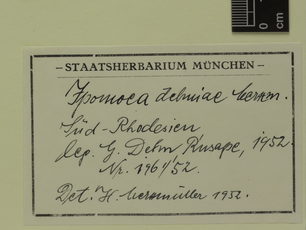 – STAATSHERBARIUM MÜNCHEN –
Ipomoea dehniae
Süd-Rhodesien,
leg. G. Dehn, Rusape, 1952.
Nr. 196/52.
Det. H. Merxmüller 1952.